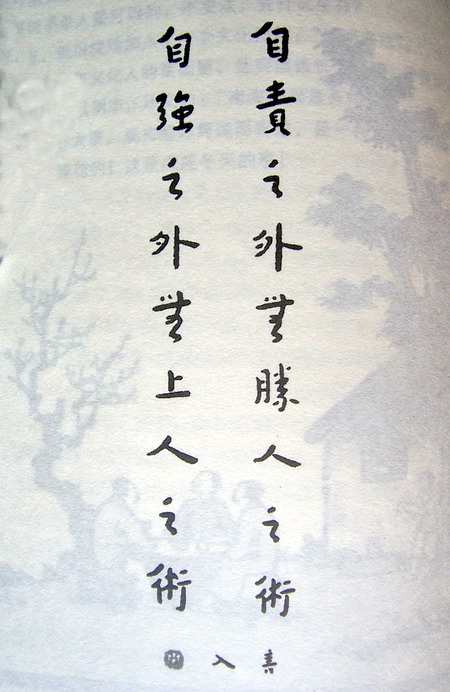 自責之外無勝人之術
自強之外無上人之術